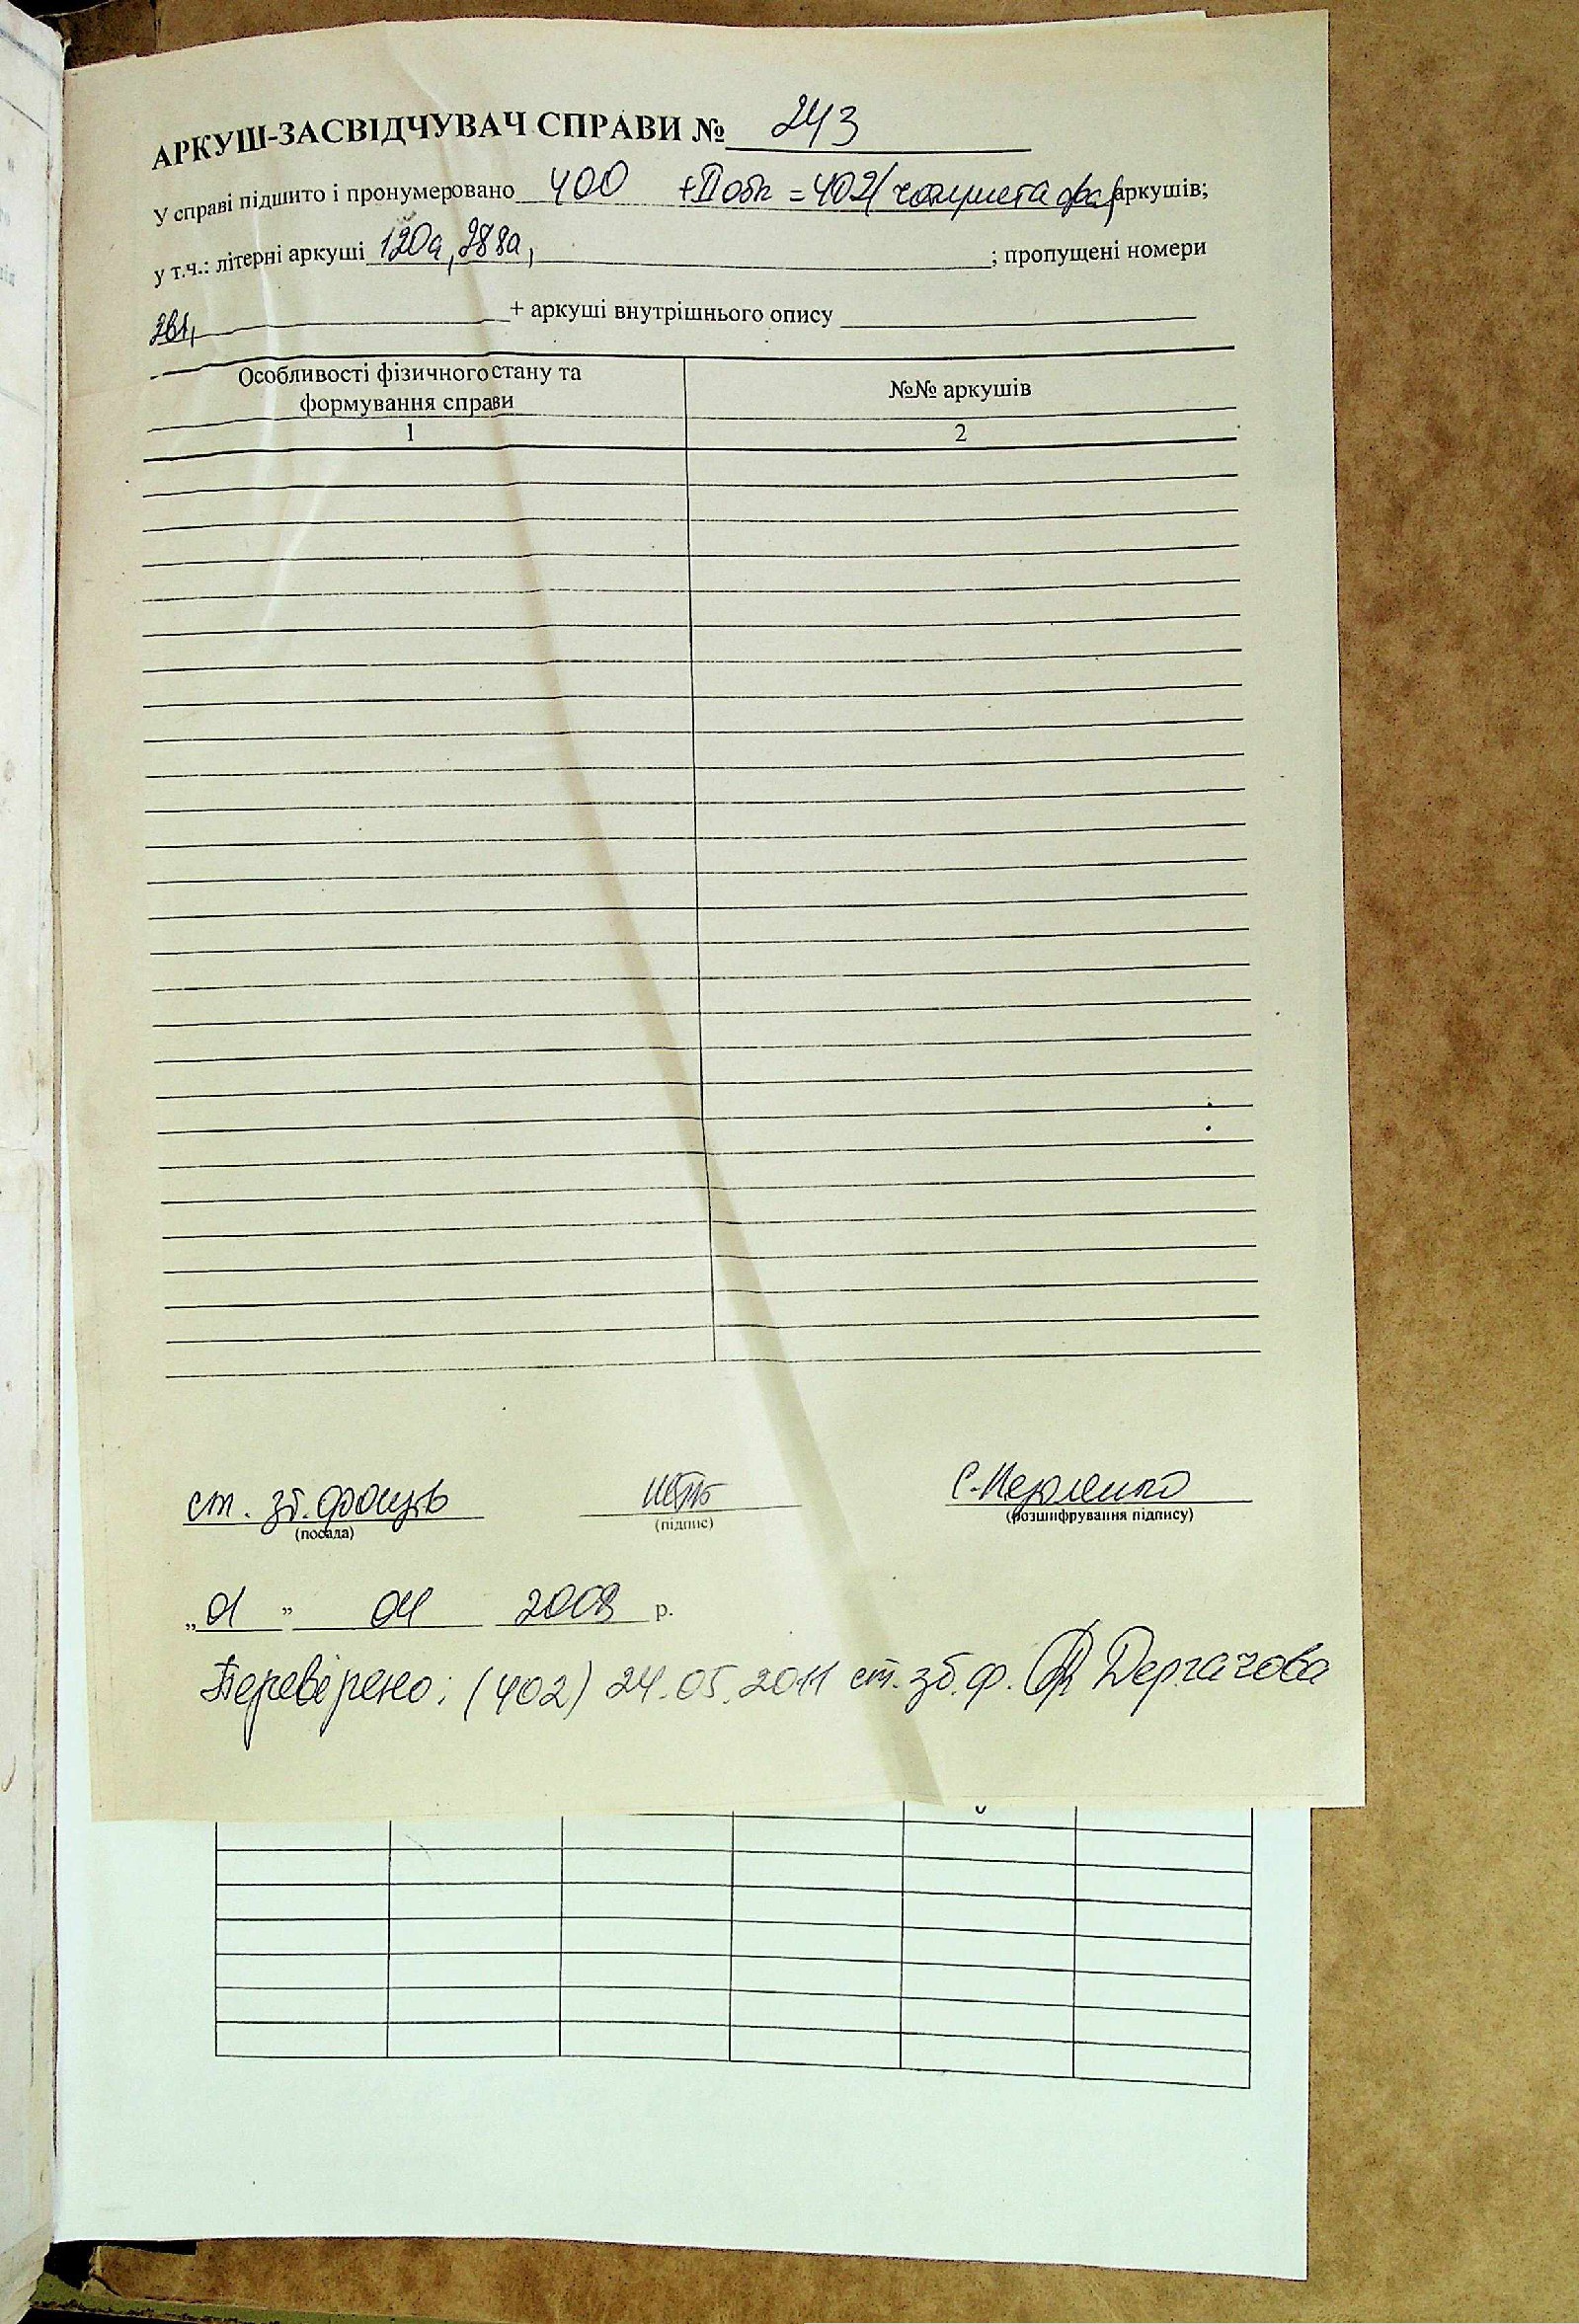 АРКУШ-ЗАСВІДЧУВАЧ СПРАВИ № 243
У справі підшито і пронумеровано 400 + II обк = 402 / аркушів;
у т.ч.: літерні аркуші 120а, 288а, ; пропущені номери
261, + аркуші внутрішнього опису
Особливості фізичного стану та формування справи
№№ аркушів
1 2
ст. зб. фондів
(посада) (підпис) (розшифрування підпису)
„01” 04 2008 р.
Перевірено: (402) 24.05.2011 ст. зб. ф. Дергачова